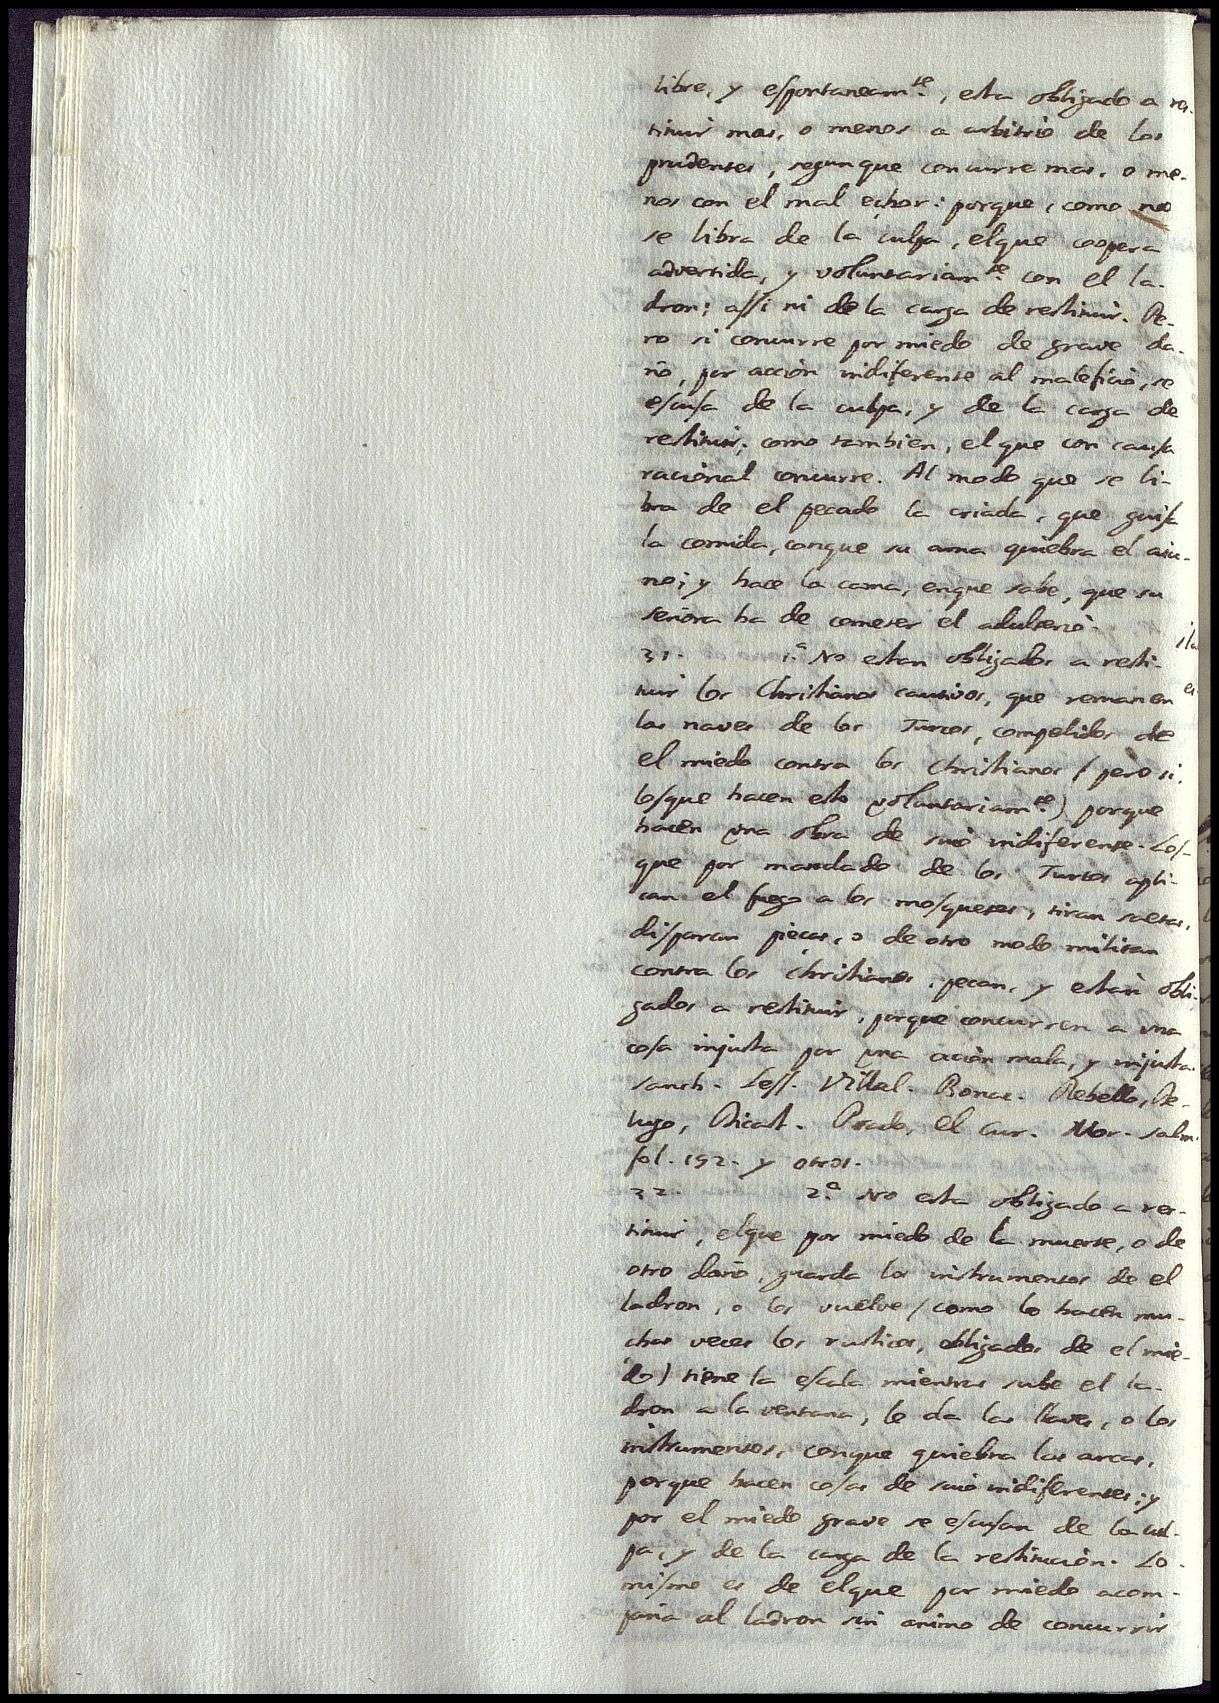 libre, y espontaneam.te, esta obligado a res-
tituir mas, o menos a arbitrio de los
prudentes, segun que concurre mas, o me-
nos con el mal echor: porque, como no
se libra de la culpa, elque coopera
advertida, y voluntariam.te con el la-
dron; assi ni de la carga de restituir. Pe-
ro si concurre por miedo de grave da-
ño, por acción indiferente al maleficio, se
escusa de la culpa, y de la carga de
restituir; como tambien, el que con causa
racional concurre. Al modo que se li-
bra de el pecado la criada, que guisa
la comida, conque su ama quiebra el aiu-
no; y hace la cama, enque sabe, que su
señora ha de cometer el adulterio.
31. 1.a No estan obligados a resti-
tuir los Christianos cautivos, que reman en
las naves de los Turcos, compelidos de
el miedo contra los Christianos (pero si
losque hacen esto voluntariam.te) porque
hacen una obra de suio indiferente. Los-
que por mandado de los Turcos apli-
can el fuego a los mosquetes, tiran saetas,
disparan piezas, o de otro modo militan
contra los Christianos, pecan, y estan obli-
gados a restituir, porque concurren a una
cosa injusta por una ación mala, y injusta.
Sanch. Less. Villal. Bonac. Rebello, De-
lugo, Dicast. Prado, el Cur. Mor. Salm.
fol. 192. y otros.
32. 2.a No esta obligado a res-
tituir, elque por miedo de la muerte, o de
otro daño, guarda los instrumentos de el
ladron, o los vuelve (como lo hacen mu-
chas veces los rusticos, obligados de el mie-
do) tiene la escala mientras sube el la-
dron a la ventana, le da las llaves, o los
instrumentos, conque quiebra las arcas,
porque hacen cosas de suio indiferentes; y
por el miedo grave se escusan de la cul-
pa, y de la carga de la restitución. Lo
mismo es de elque por miedo acom-
paña al ladron sin animo de concurrir